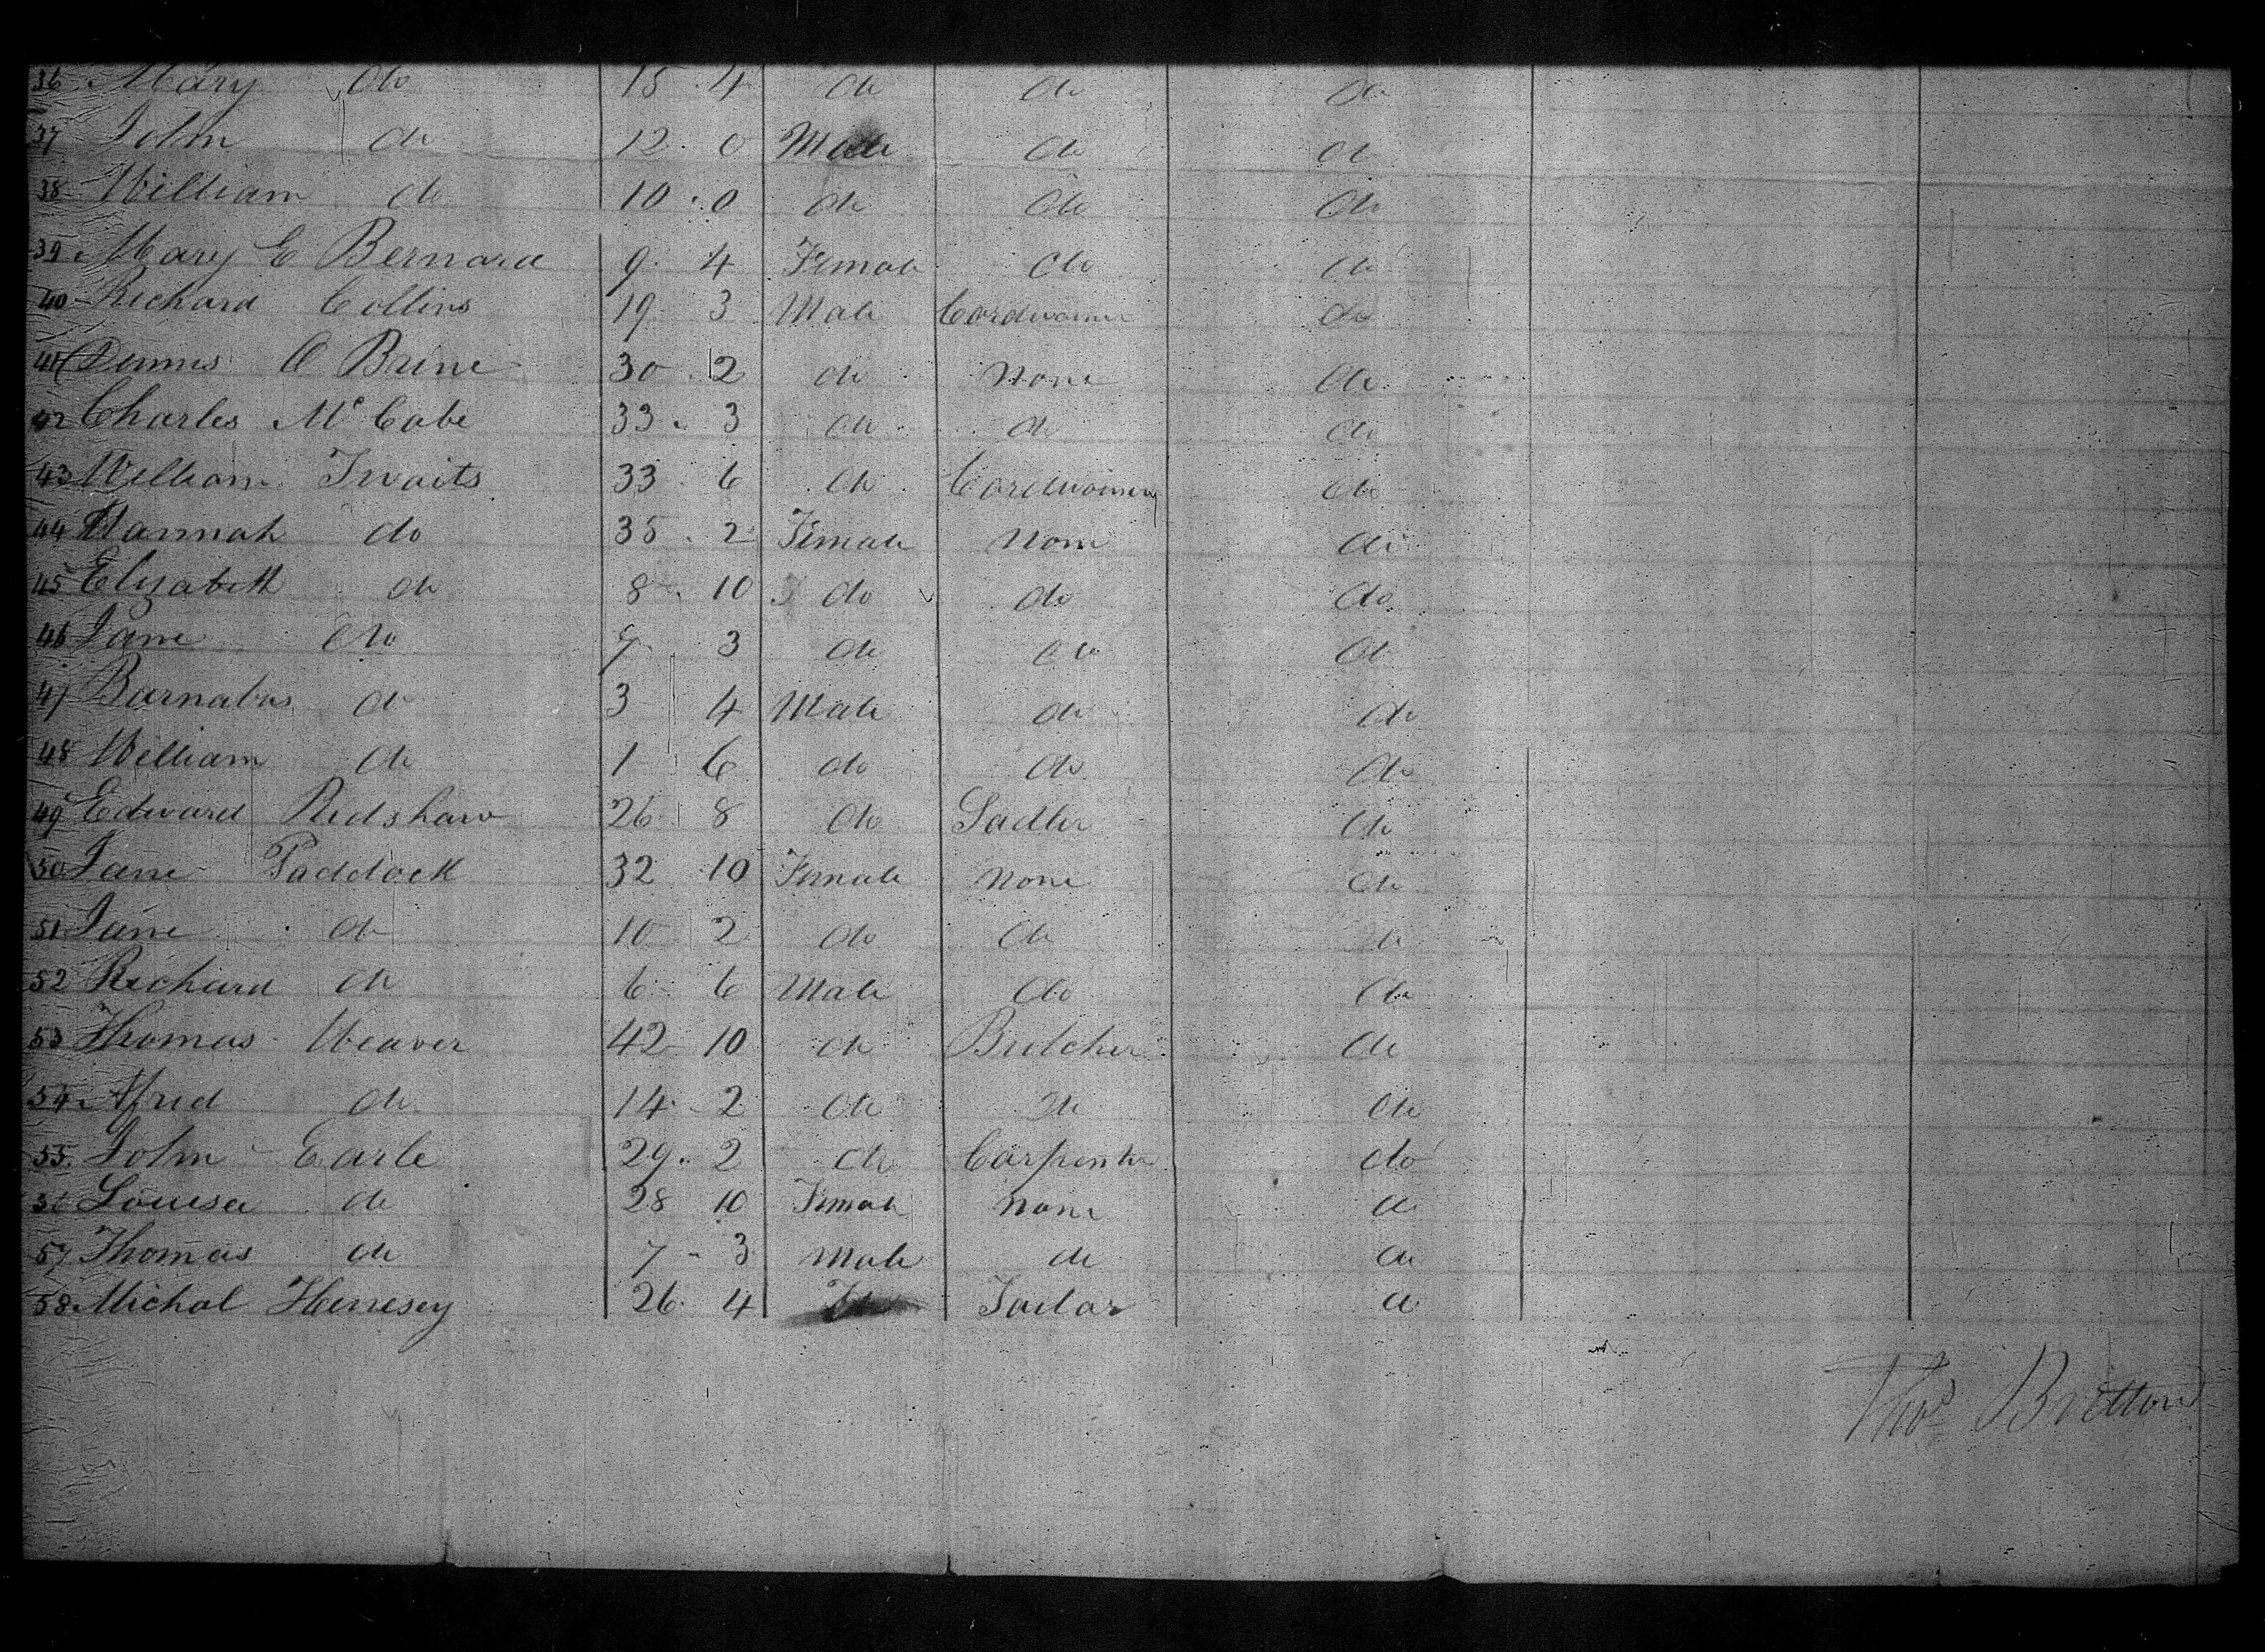 36 Mary do 15 4 do do do
37 John do 12 0 Male do do
38 William do 10 0 do do do
39 Mary E Bernard 9 4 Female do do
40 Richard Collins 19 3 Male Cordwainer do
41 Dennis O Brine 30 2 do none do
42 Charles Mc Cabe 33 3 do do do
43 William Twaits 33 6 do Cordwainer do
44 Hannah do 35 2 Female none do
45 Elizabeth do 8 10 do do do
46 Jane do 7 3 do do do
47 Barnabas do 3 4 Male do do
48 William do 1 6 do do do
49 Edward Redshaw 26 8 do Sadler do
50 Jane Paddock 32 10 Female none do
51 Jane do 10 2 do do do
52 Richard do 6 6 Male do do
53 Thomas Weaver 42 10 do Butcher do
54 Alfred do 14 2 do do do
55 John Earle 29 2 do Carpenter do
56 Louisa do 28 10 Female none do
57 Thomas do 7 3 Male do do
58 Michal Henesey 26 4 Tailor do
Thos Britton